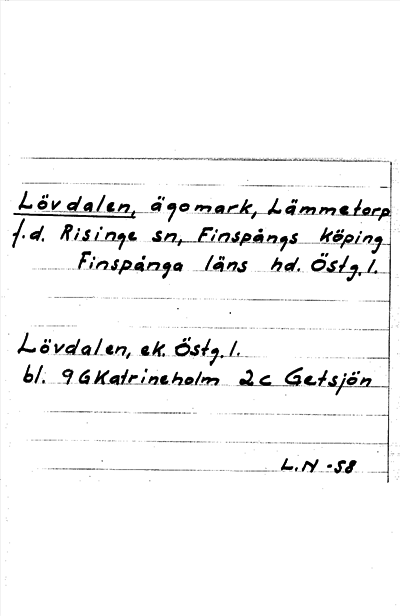 Lövdalen, ägomark, Lämmetorp
f.d. Risinge sn, Finspångs köping
Finspånga läns hd. Östg.l.
Lövdalen, ek. Östg.l.
bl. 9G Katrineholm 2c Getsjön
L.N -58